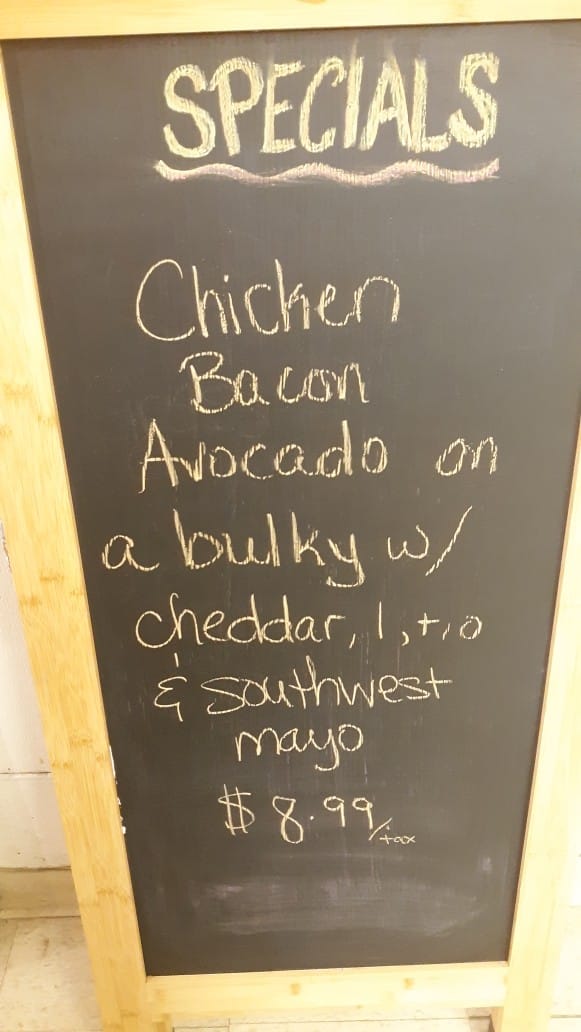 SPECIALS
Chicken
Bacon
Avocado on
a bulky w/
cheddar, l, t, o
& southwest
mayo
$8.99/tax